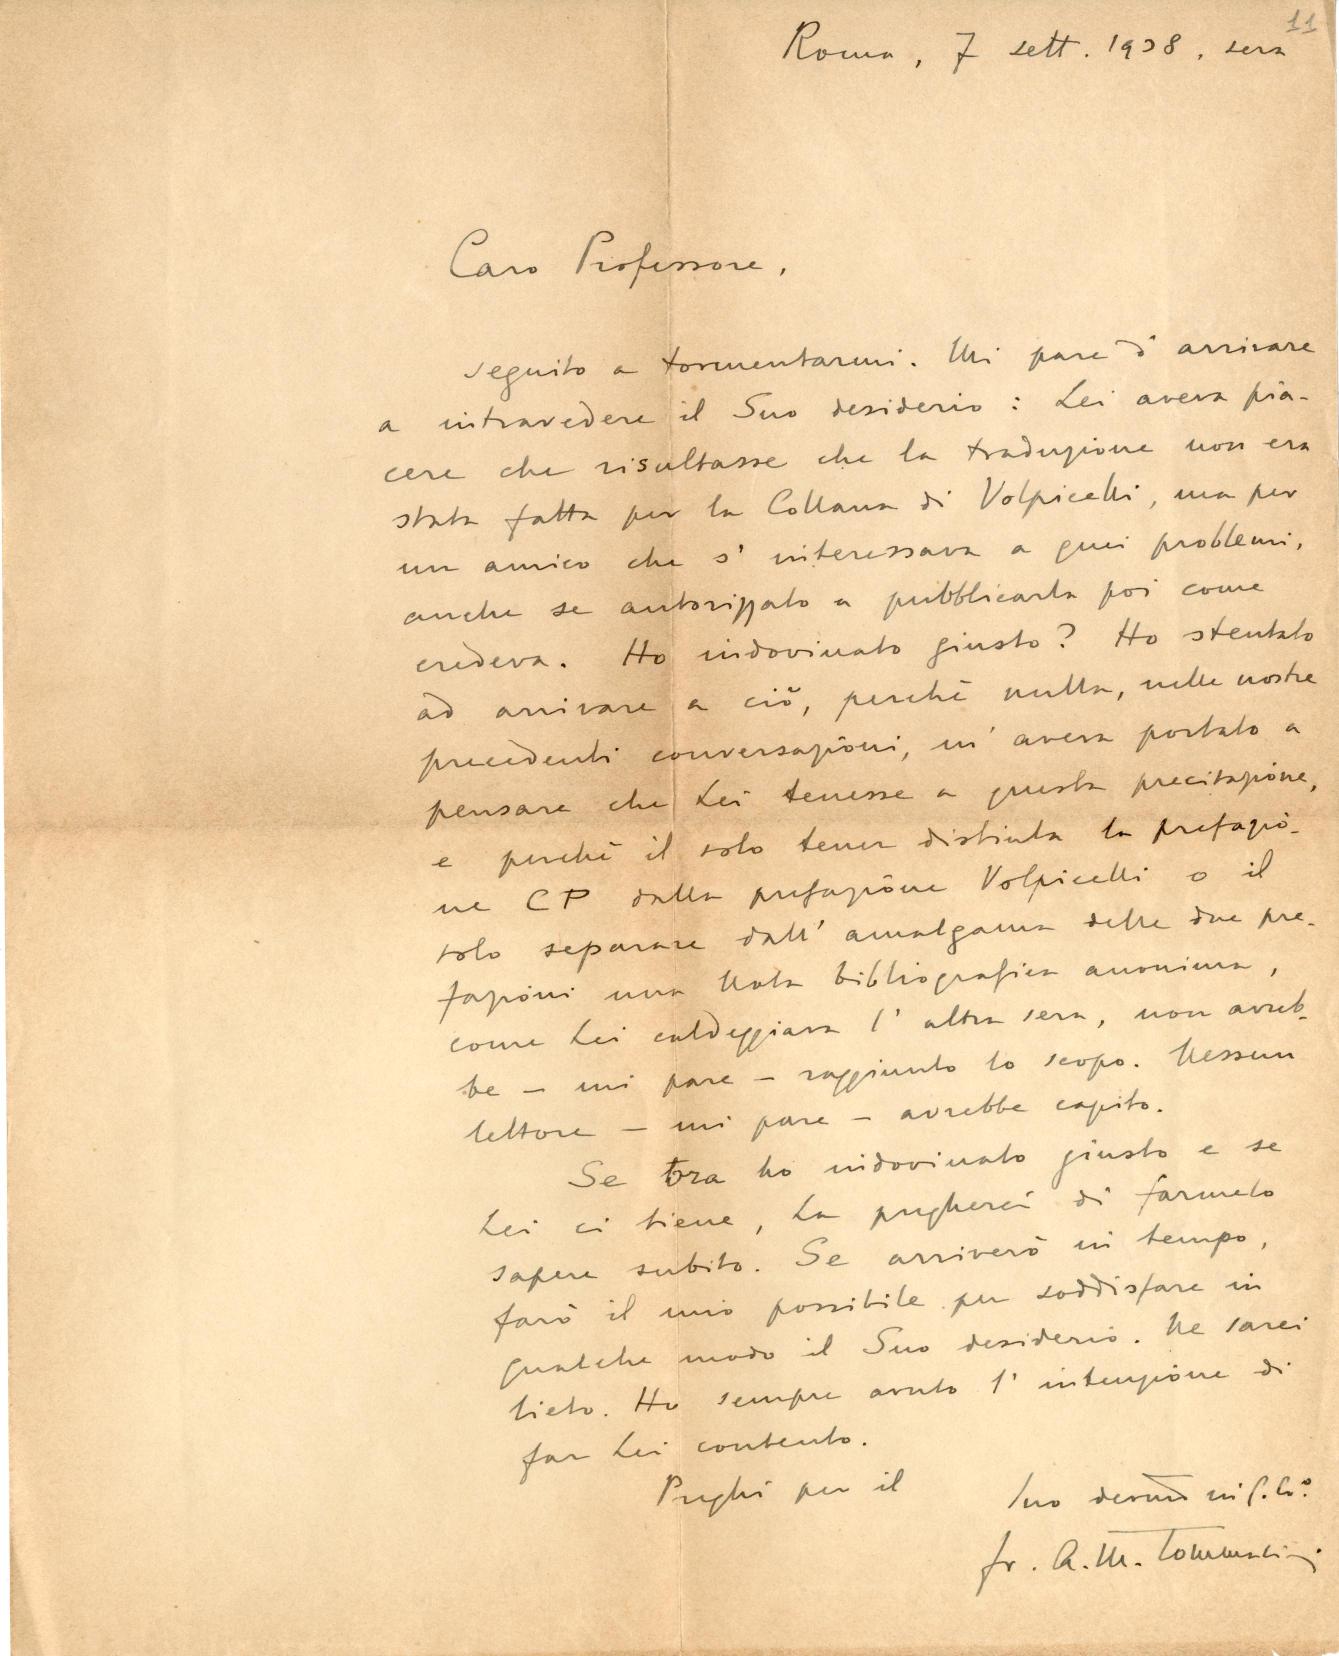 11
Roma, 7 sett. 1938, sera
Caro Professore,
seguito a tormentarmi. Mi pare d'arrivare
a intravedere il Suo desiderio: Lei aveva pia-
cere che risultasse che la traduzione non era
stata fatta per la Collana di Volpicelli, ma per
un amico che s'interessava a quei problemi,
anche se autorizzato a pubblicarla poi come
credeva. Ho indovinato giusto? Ho stentato
ad arrivare a ciò, perchè nulla, nelle nostre
precedenti conversazioni, m'aveva portato a
pensare che Lei tenesse a questa precisazione,
e perchè il solo tener distinta la prefazio-
ne CP dalla prefazione Volpicelli o il
solo separare dall'amalgama delle due pre-
fazioni una Nota bibliografica anonima,
come Lei caldeggiava l'altra sera, non avreb-
be – mi pare – raggiunto lo scopo. Nessun
lettore – mi pare – avrebbe capito.
Se ora ho indovinato giusto e se
Lei ci tiene, La pregherei di farmelo
sapere subito. Se arriverò in tempo,
farò il mio possibile per soddisfare in
qualche modo il Suo desiderio. Ne sarei
lieto. Ho sempre avuto l'intenzione di
far Lei contento.
Preghi per il Suo in
fr. A. M. Tommasini